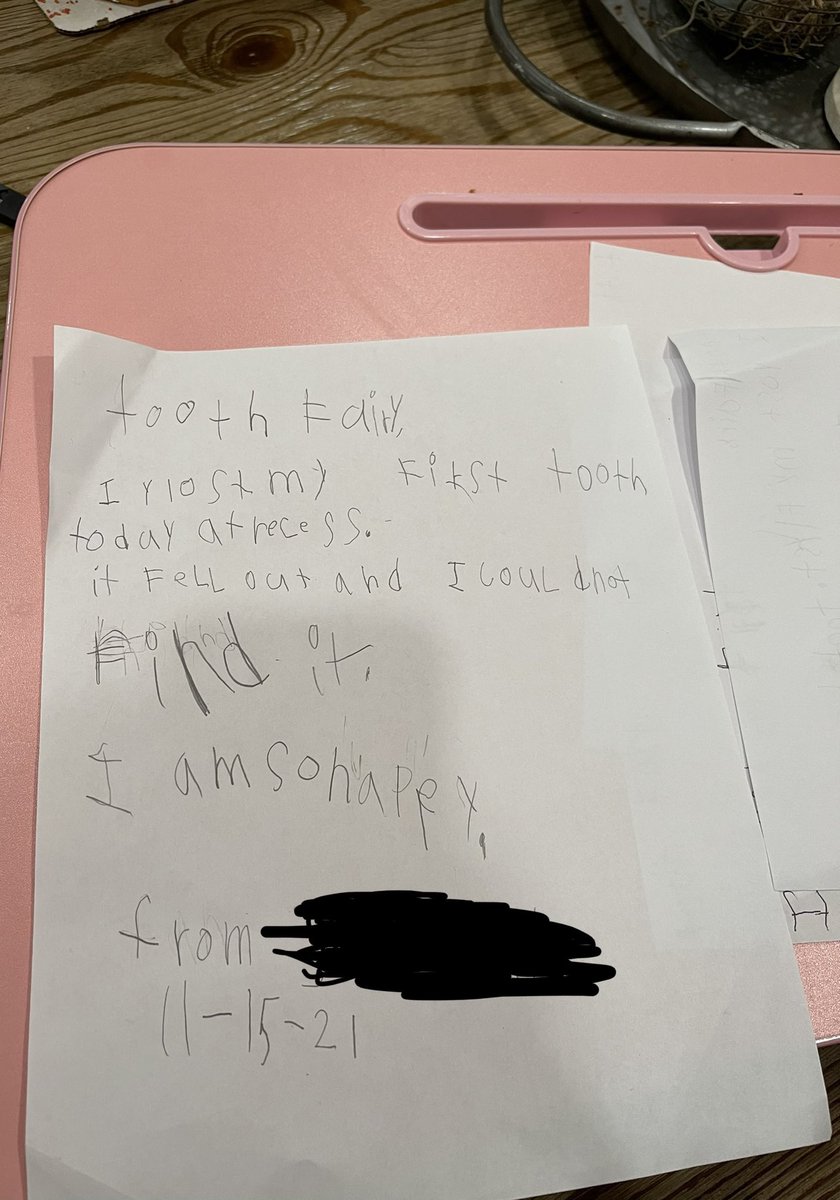 tooth Fairy,
I lost my First tooth
today at recess.
it FeLL out and I couLd not
Find it.
I am so happy.
from
11-15-21